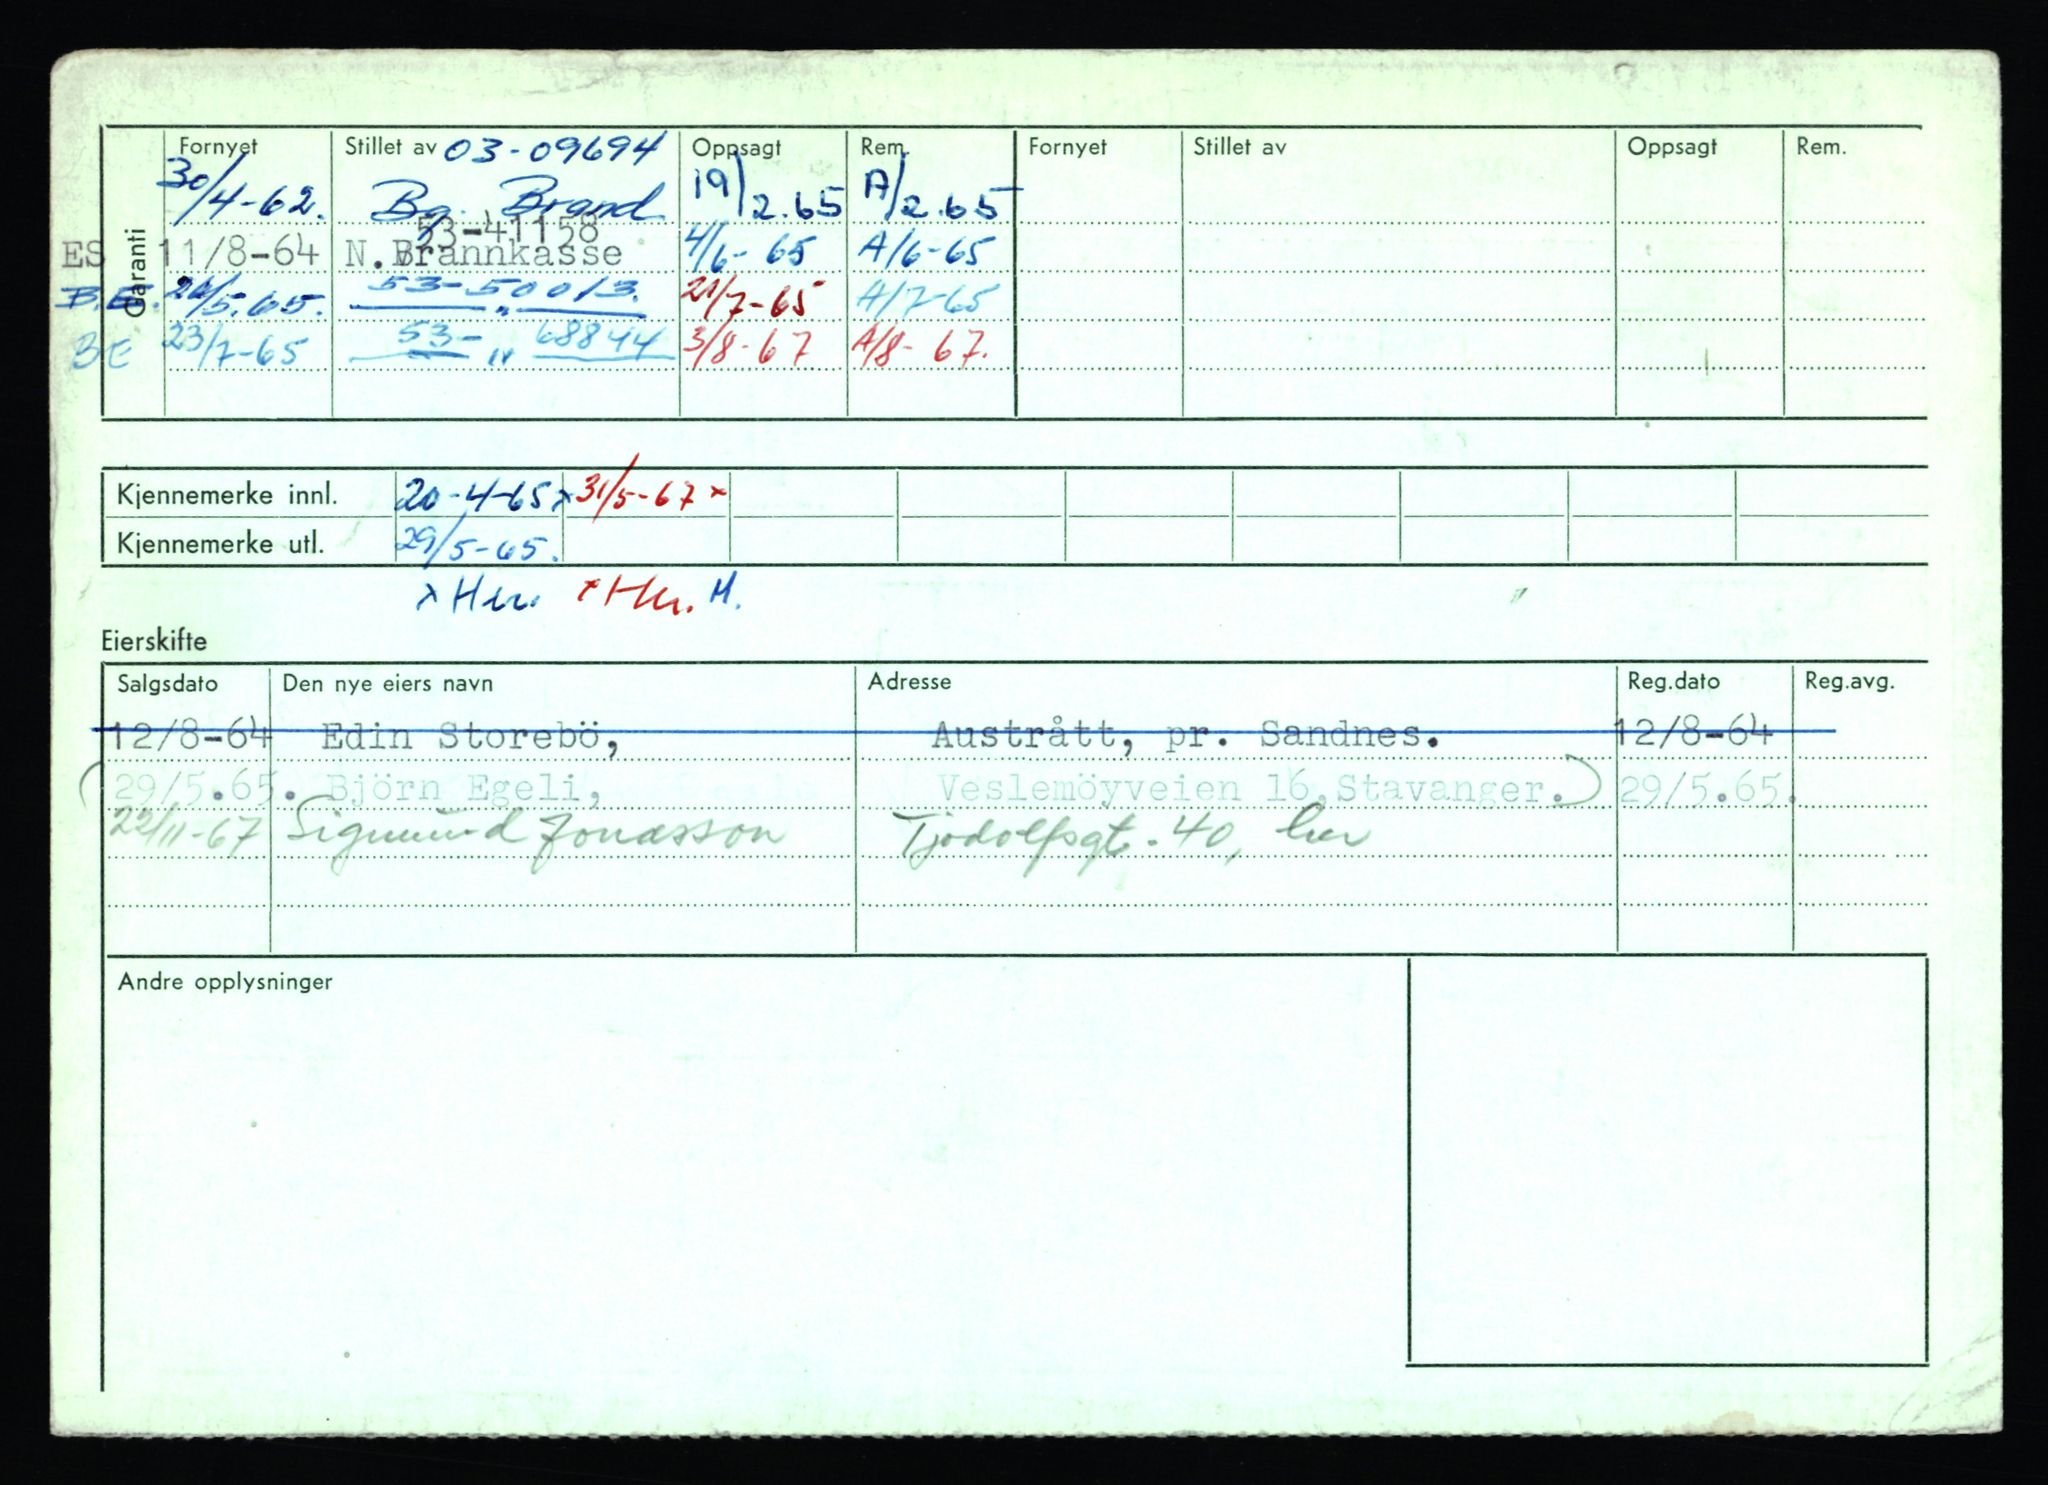 Garanti
Fornyet Stillet av 03-09694 Oppsagt Rem. Fornyet Stillet av Oppsagt Rem.
30/4-62. Bg. Brand 19/2.65 A/2.65
53-41158
ES 11/8-64 N.Brannkasse 4/6-65 A/6-65
B.E. /5.65. 53- " 50013. 21/7-65 A/7-65
BE 23/7-65 53- " 68844 3/8-67 A/8-67.
Kjennemerke innl. 20-4-65x 31/5-67 x
Kjennemerke utl. 29/5-65.
x Hu. x Hu. M.
Eierskifte
Salgsdato Den nye eiers navn Adresse Reg.dato Reg.avg.
12/8-64 Edin Storebö, Austrått, pr. Sandnes. 12/8-64
(29/5.65. Björn Egeli, Veslemöyveien 16, Stavanger.) 29/5.65.
22/11-67 Sigmund Jonasson Tjodolfsgt. 40, her
Andre opplysninger